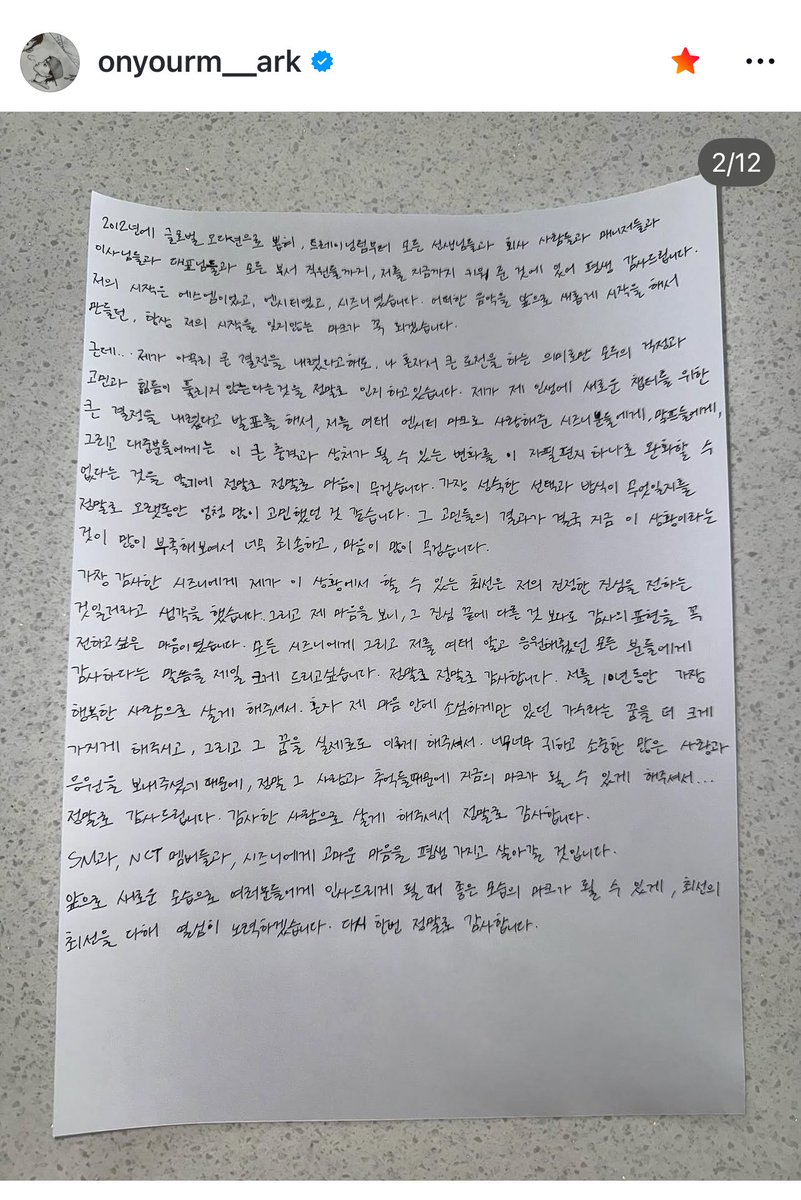 onyourm__ark
2/12
2012년에 글로벌 오디션으로 뽑혀, 트레이닝팀부터 모든 선생님들과 회사 사람들과 매니저들과
이사님들과 대표님들과 모든 부서 직원들까지, 저를 지금까지 키워 준 것에 있어 평생 감사드립니다.
저의 시작은 에스엠이였고, 엔시티였고, 시즈니였습니다. 어떠한 음악을 앞으로 새롭게 시작을 해서
만들던, 항상 저의 시작을 잊지않는 마크가 꼭 되겠습니다.
근데... 제가 아무리 큰 결정을 내렸다고해도, 나 혼자서 큰 도전을 하는 의미로만 모두의 걱정과
고민과 힘듦이 풀리지 않는다는것을 정말로 인지하고있습니다. 제가 제 인생에 새로운 챕터를 위한
큰 결정을 내렸다고 발표를 해서, 저를 여태 엔시티 마크로 사랑해준 시즈니분들에게, 맠프들에게,
그리고 대중분들에게는 이 큰 충격과 상처가 될 수 있는 변화를 이 자필편지 하나로 완화할 수
없다는 것을 알기에 정말로 정말로 마음이 무겁습니다. 가장 성숙한 선택과 방식이 무엇일지를
정말로 오랫동안 엄청 많이 고민했던 것 같습니다. 그 고민들의 결과가 결국 지금 이 상황이라는
것이 많이 부족해보여서 너무 죄송하고, 마음이 많이 무겁습니다.
가장 감사한 시즈니에게 제가 이 상황에서 할 수 있는 최선은 저의 진정한 진심을 전하는
것일거라고 생각을 했습니다. 그리고 제 마음을 보니, 그 진심 끝에 다른 것 보다도 감사의 표현을 꼭
전하고싶은 마음이였습니다. 모든 시즈니에게 그리고 저를 여태 알고 응원해줬던 모든 분들에게
감사하다는 말씀을 제일 크게 드리고싶습니다. 정말로 정말로 감사합니다. 저를 10년동안 가장
행복한 사람으로 살게 해주셔서. 혼자 제 마음 안에 소심하게만 있던 가수라는 꿈을 더 크게
가지게 해주시고, 그리고 그 꿈을 실제로도 이루게 해주셔서. 너무너무 귀하고 소중한 많은 사랑과
응원을 보내주셨기 때문에, 정말 그 사랑과 추억들때문에 지금의 마크가 될 수 있게 해주셔서...
정말로 감사드립니다. 감사한 사람으로 살게 해주셔서 정말로 감사합니다.
SM과, NCT 멤버들과, 시즈니에게 고마운 마음을 평생 가지고 살아갈 것입니다.
앞으로 새로운 모습으로 여러분들에게 인사드리게 될 때 좋은 모습의 마크가 될 수 있게, 최선의
최선을 다해 열심히 노력하겠습니다. 다시 한번 정말로 감사합니다.